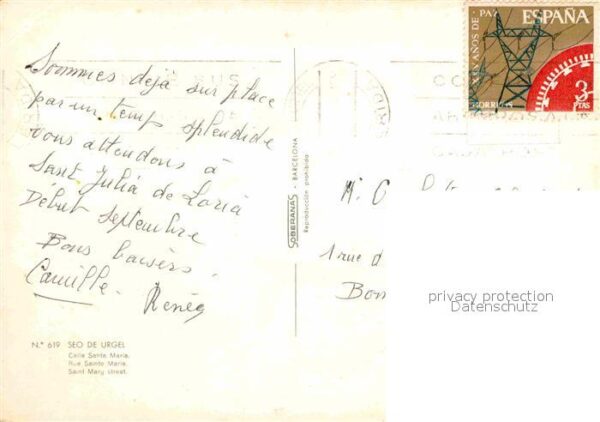 Sommes deja sur place
par un temp splendide
vous attendons à
Sant Julia de Loria
Début septembre
Bons baisers.
Camille - Renée
N.° 619 SEO DE URGEL
Calle Santa María.
Rue Sainte Marie.
Saint Mary street.
SOBERANAS - BARCELONA
Reproducción prohibida
XXV AÑOS DE PAZ
ESPAÑA
3
PTAS
CORREOS
1 rue d
Bon
privacy protection
Datenschutz